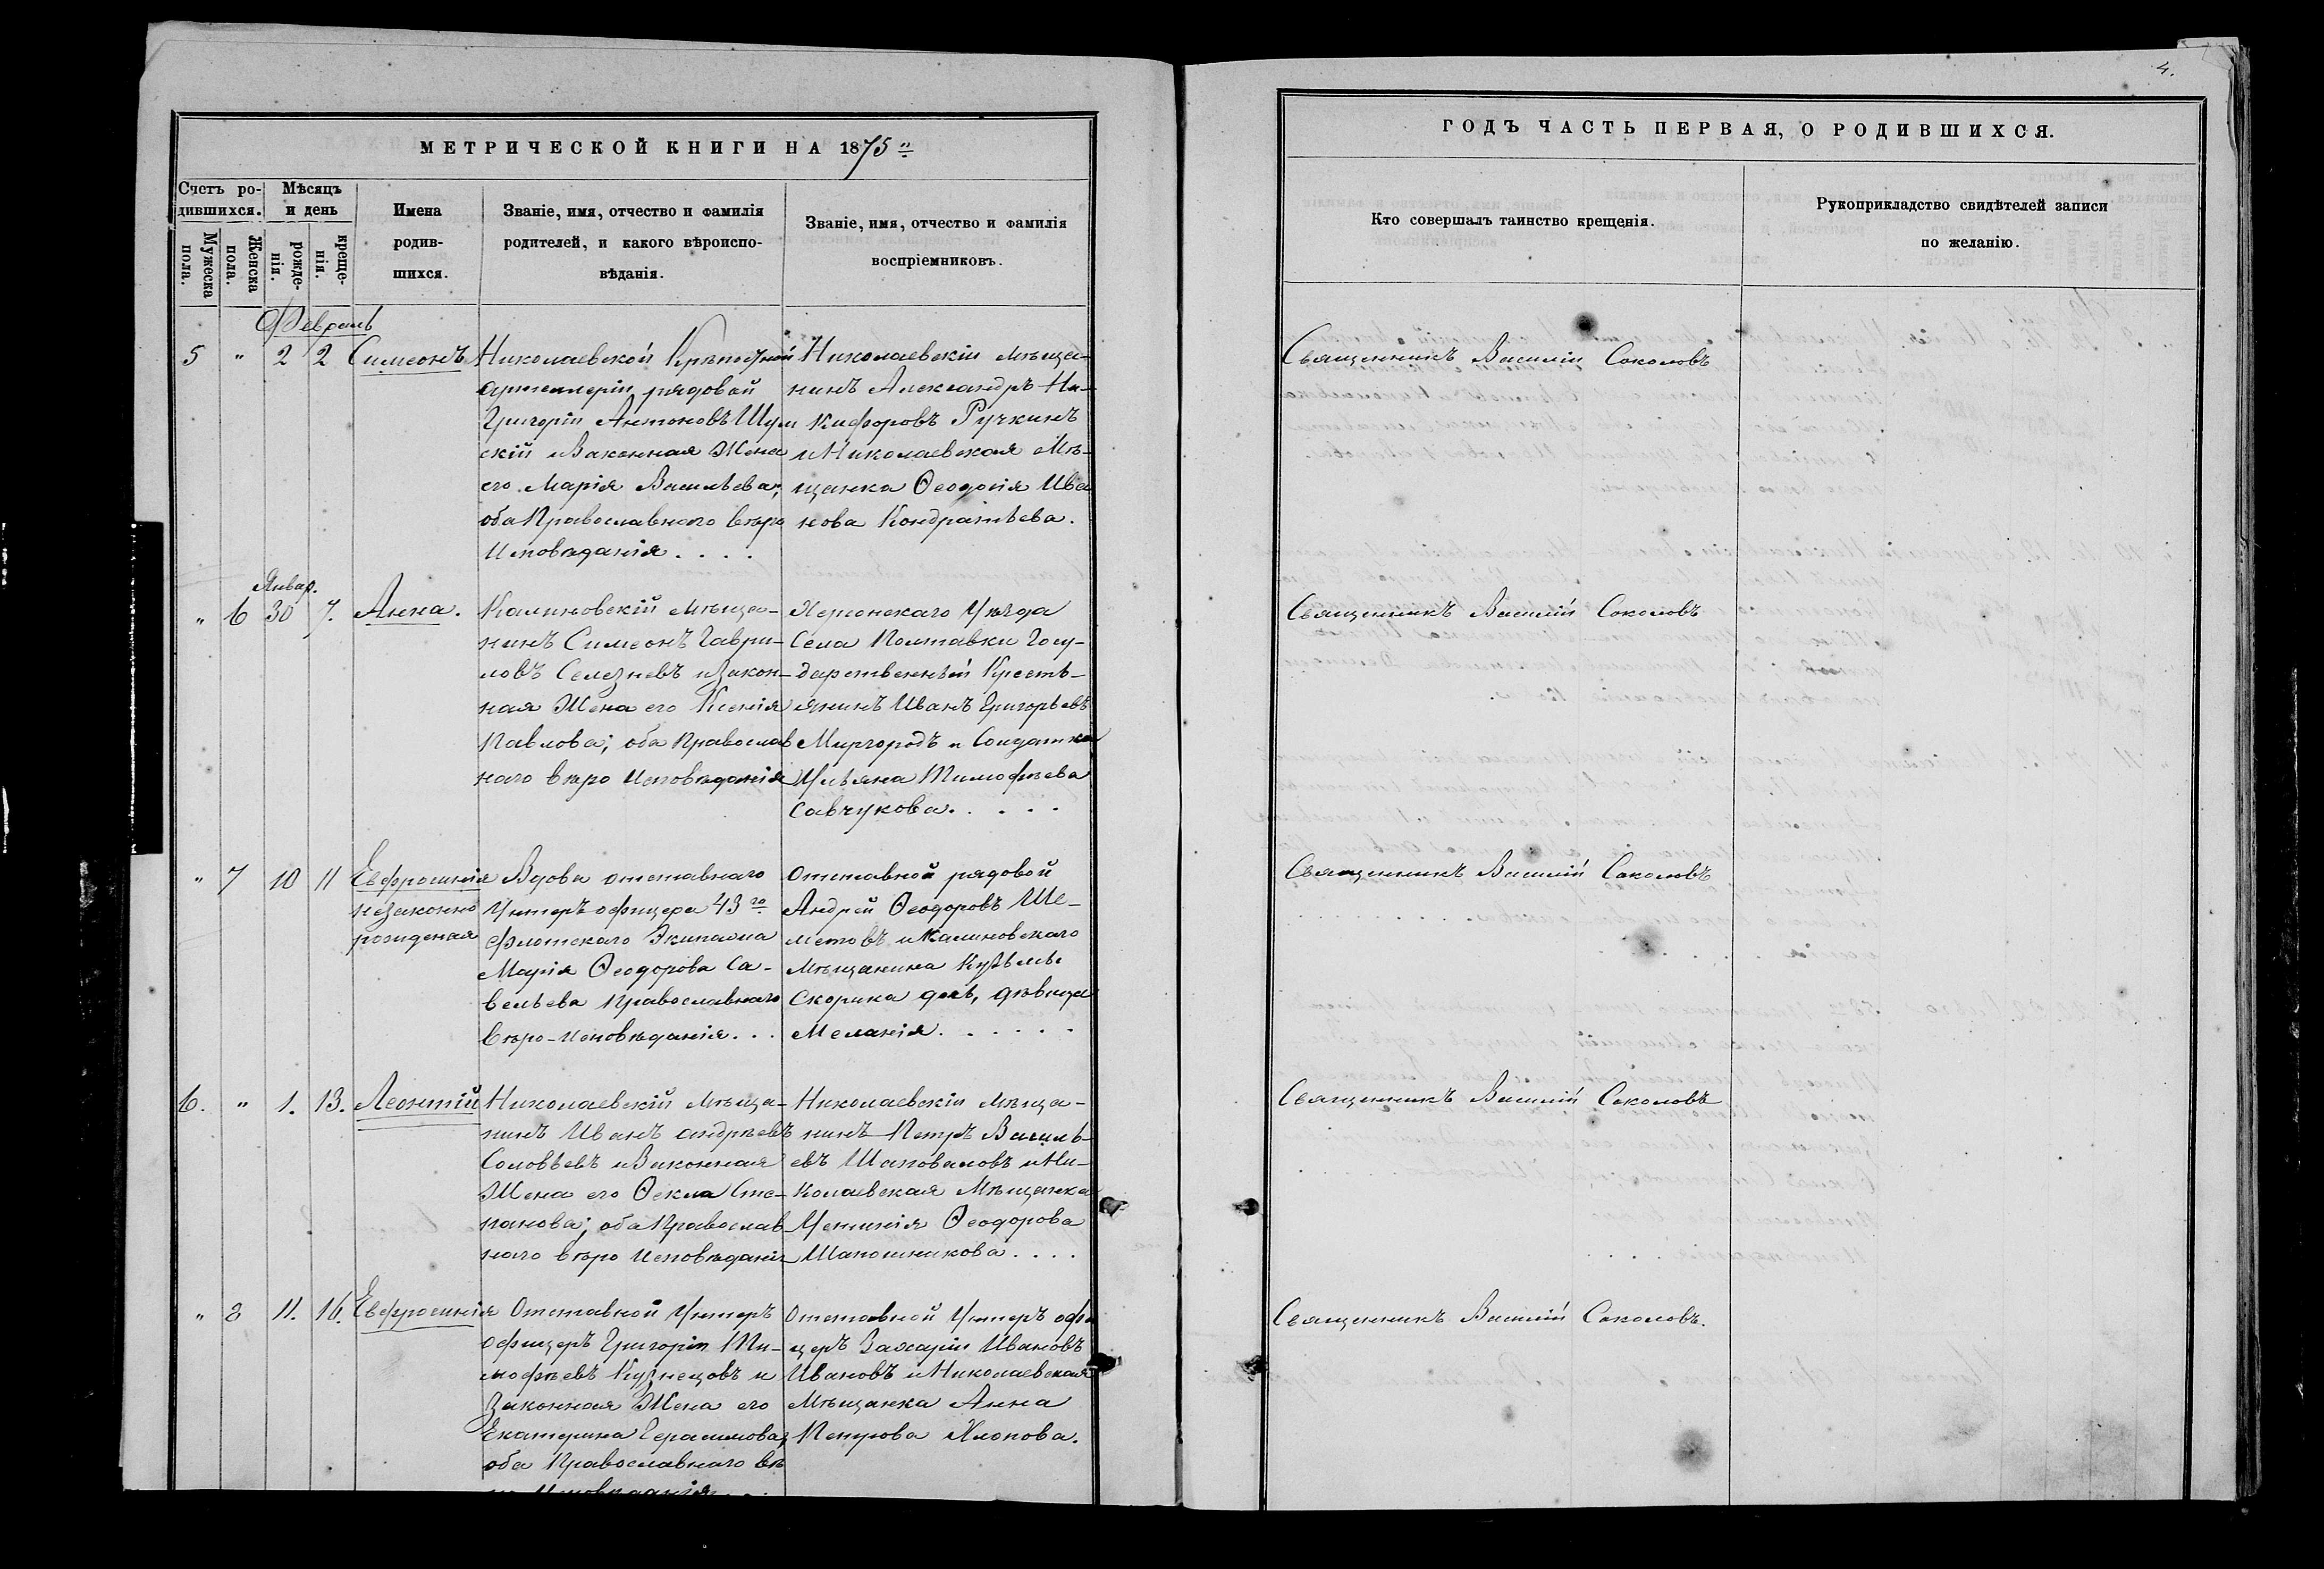 4.
МЕТРИЧЕСКОЙ КНИГИ НА 1875 г.
Счетъ родившихся.
Мужеска пола.
Женска пола.
Мѣсяцъ и день
рожденія.
крещенія.
Имена
родив-
шихся.
Званіе, имя, отчество и фамилія
родителей, и какого вѣроиспо-
вѣданія.
Званіе, имя, отчество и фамилія
воспріемниковъ.
ГОДЪ ЧАСТЬ ПЕРВАЯ, О РОДИВШИХСЯ.
Кто совершалъ таинство крещенія.
Рукоприкладство свидѣтелей записи
по желанію.
Февраль
5 " 2 2 Симеонъ
Николаевской Крѣпостной
артиллеріи рядовой
Григорій Антоновъ Шум
скій и Законная Жена
его Марія Васильева;
оба Православнаго вѣро
Исповѣданія . . . .
Николаевскій мѣща-
нинъ Александръ Ни-
кифоровъ Ручкинъ
и Николаевская Мѣ-
щанка Ѳеодосія Ива
нова Кондратьева.
Священникъ Василій Соколовъ
Январ.
" 6 30 7. Анна.
Калиновскій мѣща-
нинъ Симеонъ Гаври-
ловъ Селезневъ и Закон-
ная Жена его Ксенія
Павлова; оба Православ
наго вѣро Исповѣданія
Херсонскаго Уѣзда
Села Полтавки Госу-
дарственный Кресть-
янинъ Иванъ Григорьевъ
Миргородъ и Солдатка
Ульяна Тимофѣева
Савчукова. . . . .
Священникъ Василій Соколовъ
" 7 10 11 Евфросинія
незаконно
рожденая
Вдова отставнаго
Унтеръ офицера 43 го
флотскаго Экипажа
Марія Ѳеодорова Са-
вельева Православнаго
вѣро-исповѣданія. . .
Отставной рядовой
Андрей Ѳеодоровъ Ше-
метовъ и Калиновскаго
Мѣщанина Кузьмы
Скорика дочь, дѣвица
Меланія. . . . . .
Священникъ Василій Соколовъ
6. " 1. 13. Леонтій
Николаевскій мѣща-
нинъ Иванъ андрѣевъ
Соловьевъ и Законная
Жена его Ѳекла Сте-
панова; оба Православ
наго вѣро Исповѣданія
Николаевскій мѣща-
нинъ Петръ Василь-
евъ Шаповаловъ и Ни-
колаевская Мѣщанка
Устинія Ѳеодорова
Шапошникова . . . .
Священникъ Василій Соколовъ
" 8 11. 16. Евфросинія
Отставной Унтеръ
офицеръ Григорій Ти-
мофѣевъ Кузнецовъ и
Законная Жена его
Екатерина Герасимова;
оба Православнаго вѣ
ро Исповѣданія . .
Отставной Унтеръ офи
церъ Захарій Ивановъ
Ивановъ и Николаевская
Мѣщанка Анна
Петрова Хлопова.
Священникъ Василій Соколовъ.